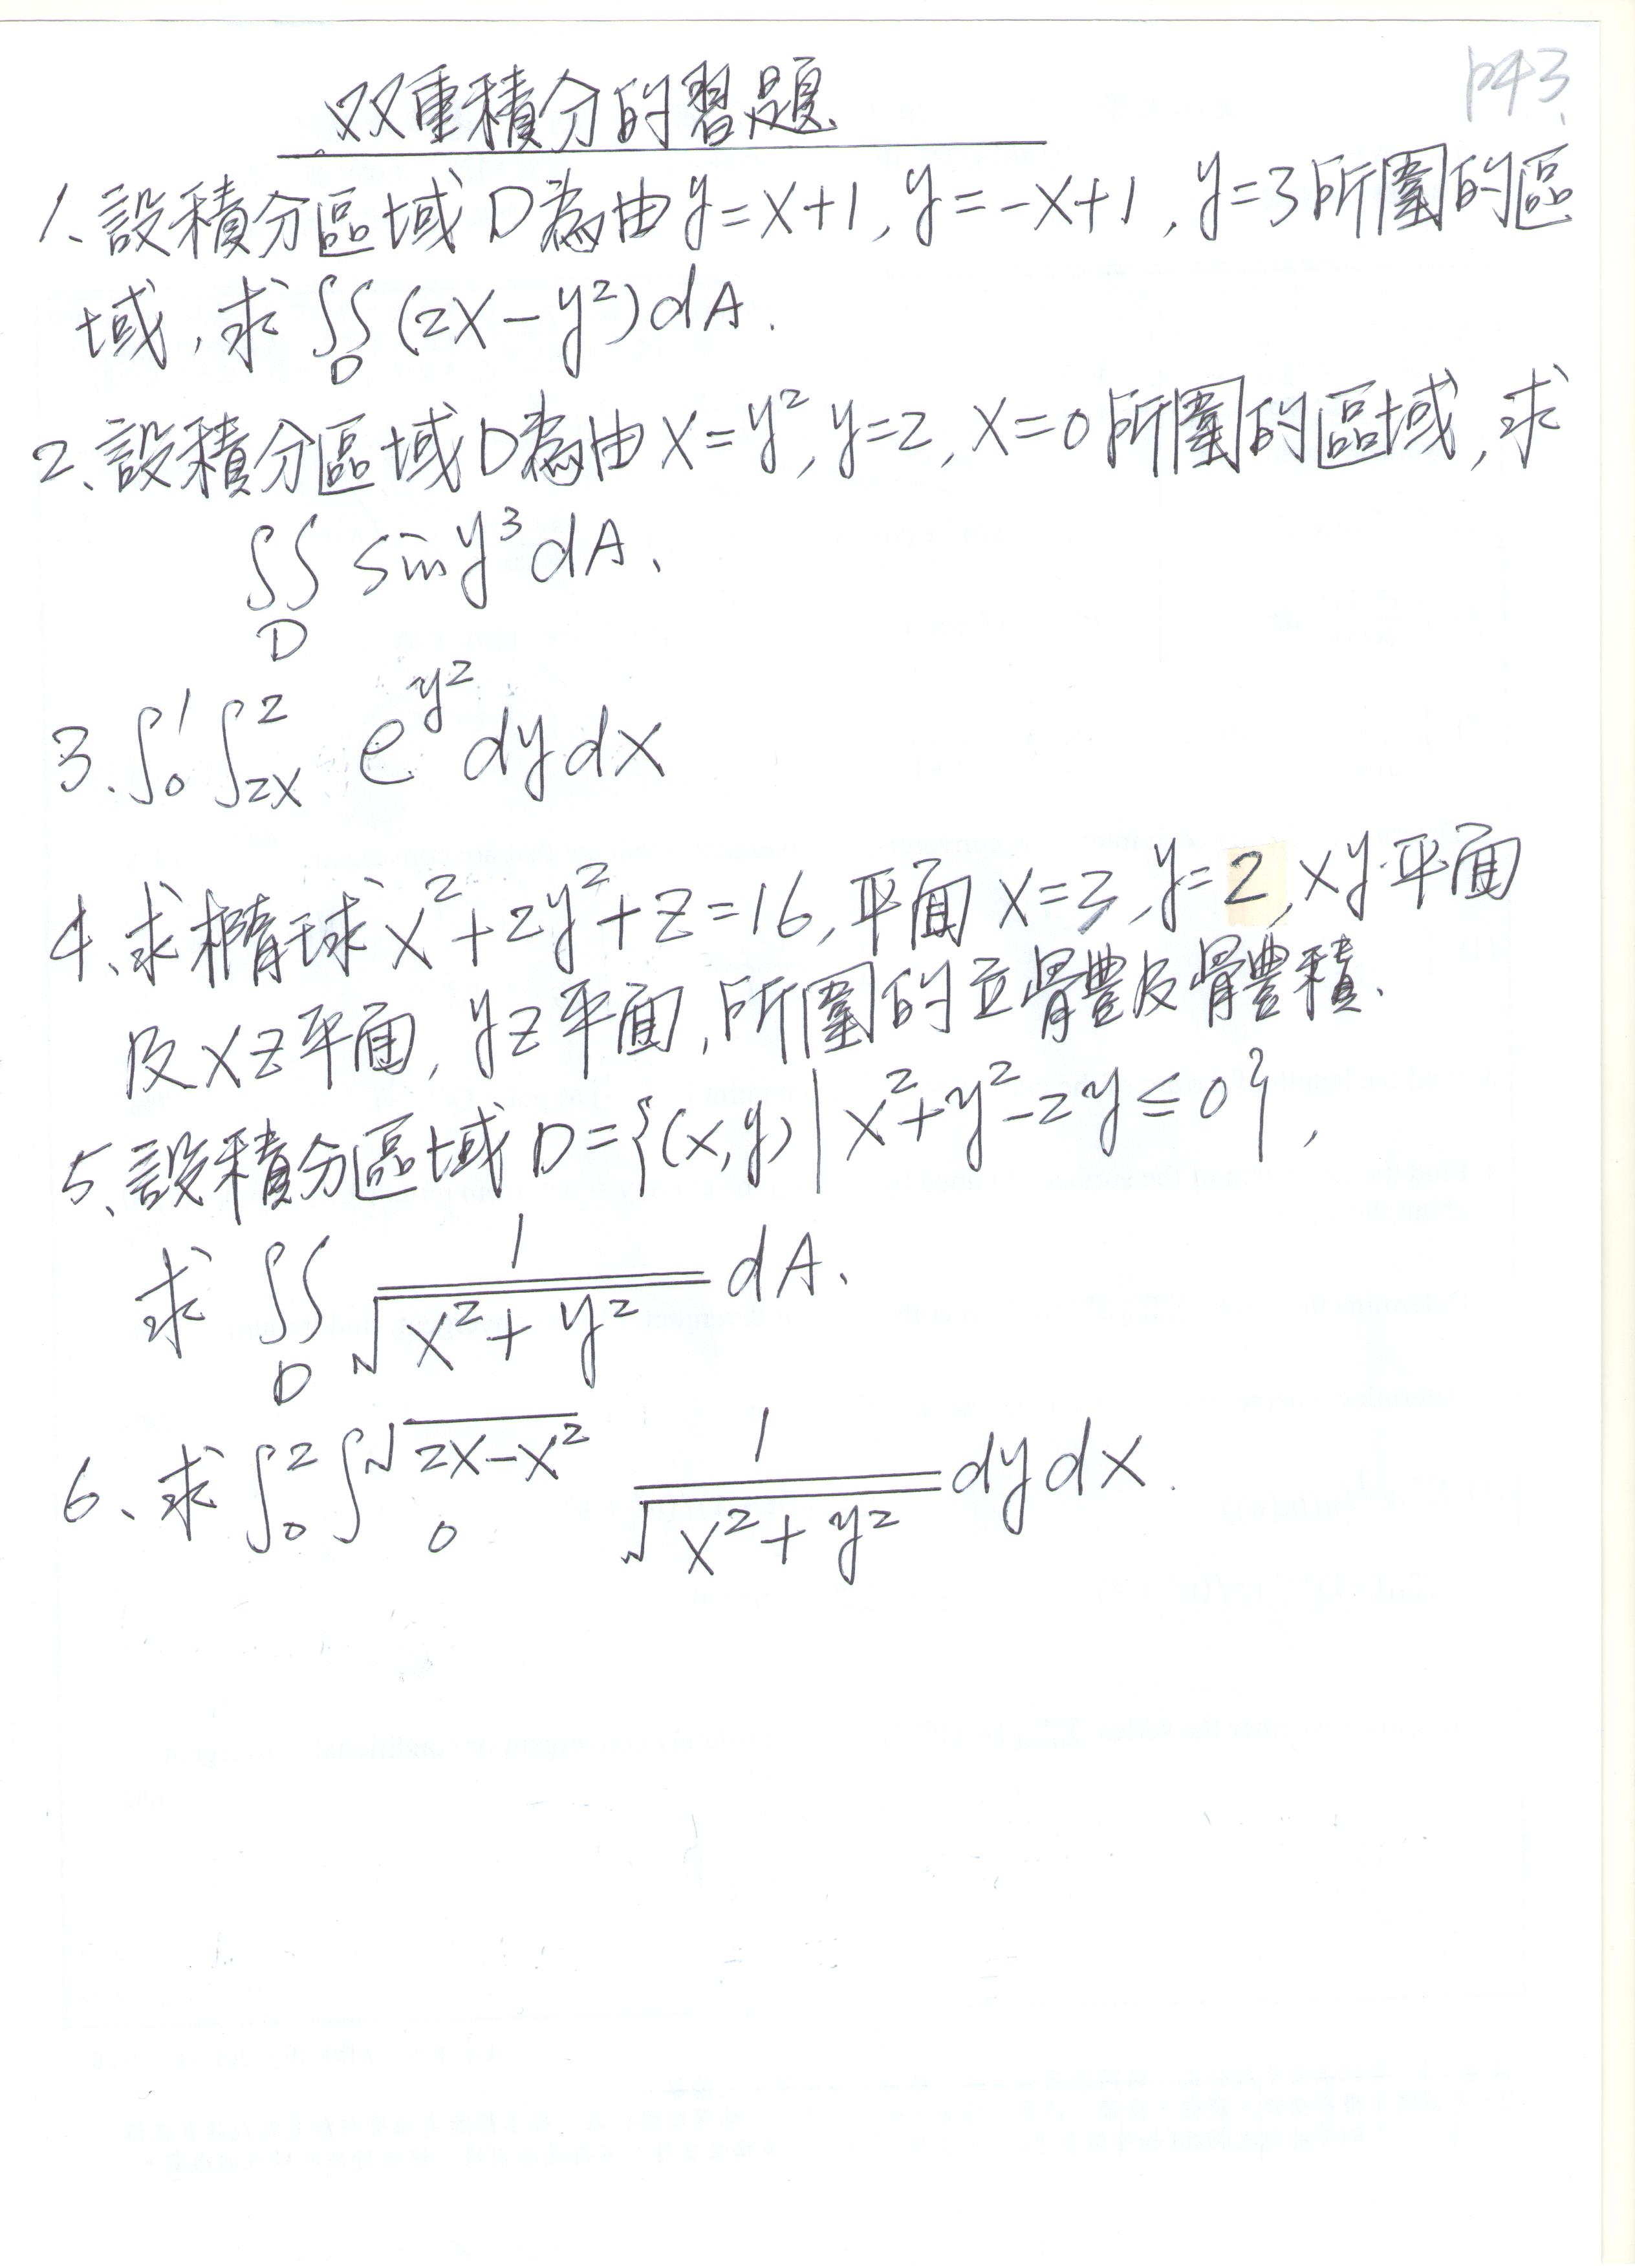 p43.
双重積分的習題
1、設積分區域D為由y=x+1, y=-x+1, y=3所圍的區
域,求∬_D (2x-y²)dA.
2、設積分區域D為由x=y², y=2, x=0所圍的區域,求
∬_D sin y³ dA、
3. ∫_0^1 ∫_{2x}^2 e^{y²} dy dx
4、求橢球x²+2y²+z=16,平面x=2, y=2, xy平面
及xz平面, yz平面,所圍的立體及體積、
5、設積分區域D={(x,y)|x²+y²-2y≤0},
求∬_D 1/√(x²+y²) dA、
6、求∫_0^2 ∫_0^{√(2x-x²)} 1/√(x²+y²) dy dx.